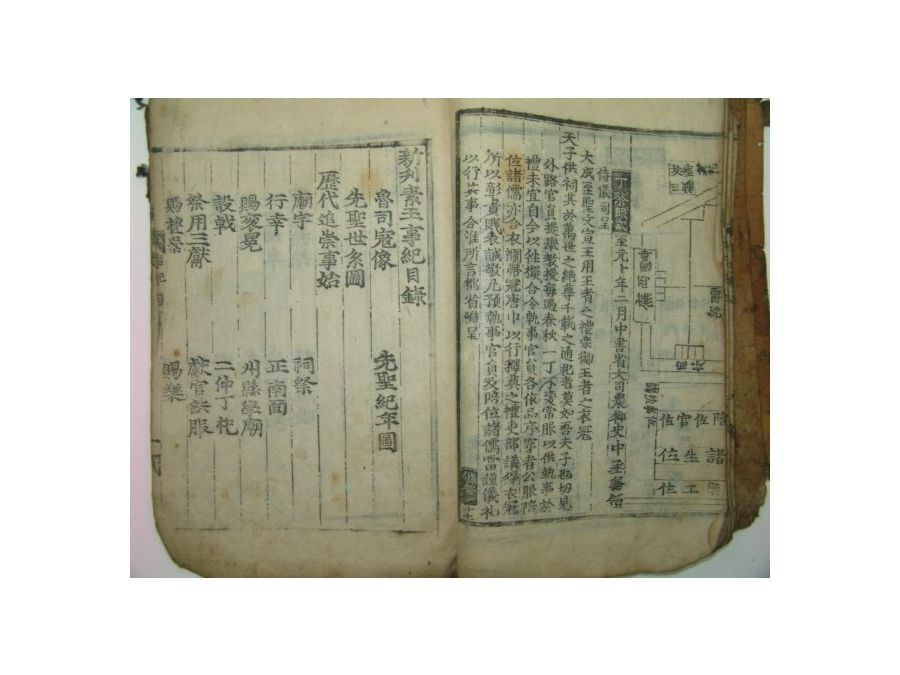 位官佐陪
位生諸
位工樂
至元十年二月中書省大司農御史中丞兼領
侍儀司呈
大成至聖文宣王用王者之禮樂御王者之衣冠
天子供祠其於萬世之絶尊千載之通祀者莫如吾夫子也切見
外路官員提擧教授每遇春秋二丁不變常服以供執事於
禮未宜自今以往擬合令執事官員各依品序穿着公服陪
位諸儒亦合衣襴幞冠唐巾以行釋奠之禮吏部議得衣冠
所以彰貴賤表誠敬凡預執事官員及陪位諸儒當謹儀礼
以行其事合准所言都省准呈
新刋素王事紀目錄
魯司寇像 先聖紀年圖
先聖世系圖
歷代追崇事始
廟宇 祠祭
行幸 正南面
賜衮冕 州縣學廟
設戟 二仲丁祀
祭用三獻 獻官法服
賜禮器 賜樂